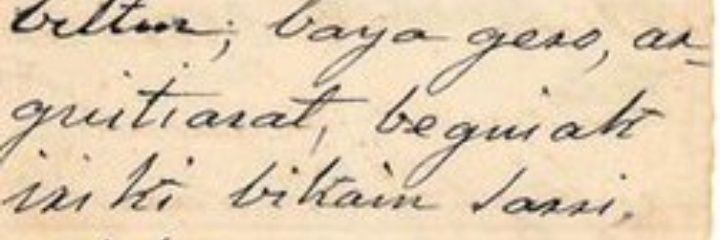 beltur; baya gero, ar-
guitiarat, beguiak
iriki bikain sarri.